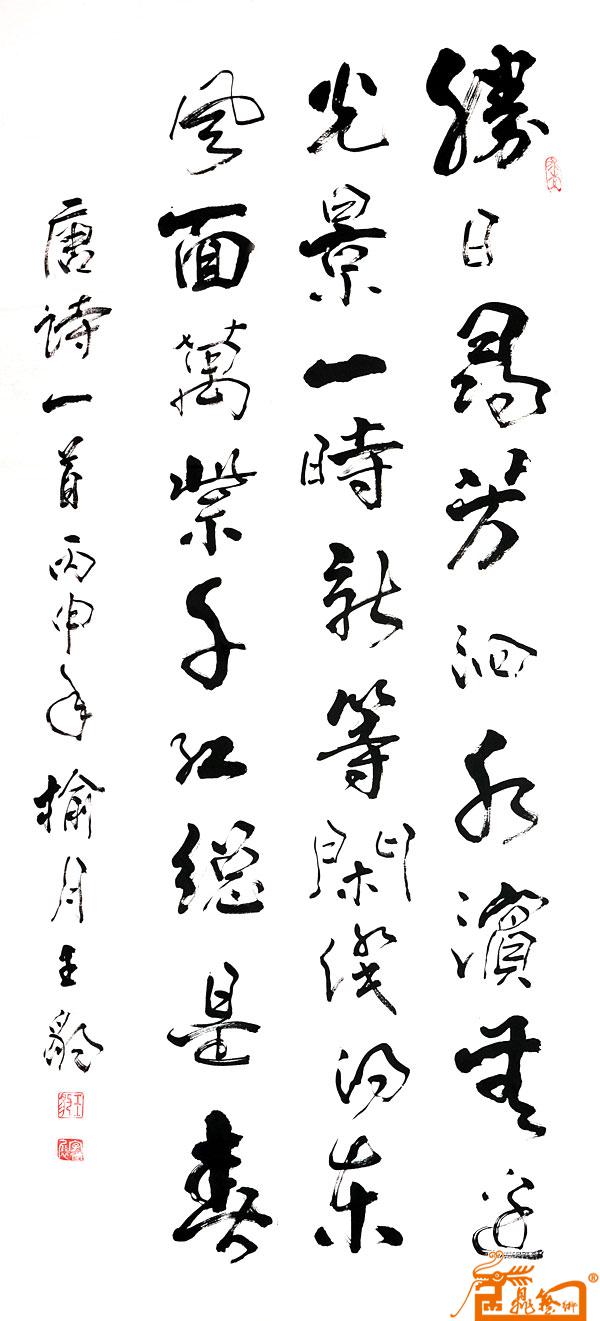 勝日尋芳泗水濱無邊
光景一時新等閑識得東
風面萬紫千紅總是春
唐詩一首丙申年榆月王豹